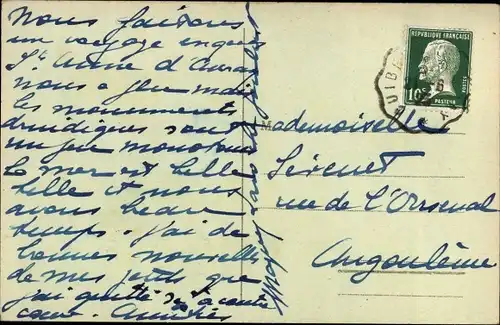 Nous faisons
un voyage
Ste Anne d'Auray
nous a plu mais
les monuments
druidiques sont
un peu monotones
la mer est belle
belle et nous
avons beau
temps. J'ai de
bonnes nouvelles
de mes que
j'ai quitté contre
cœur. Amitiés
RÉPUBLIQUE FRANÇAISE
10c
POSTES
PASTEUR
QUIB
Mademoiselle
rue de l'Arsenal
Angoulême